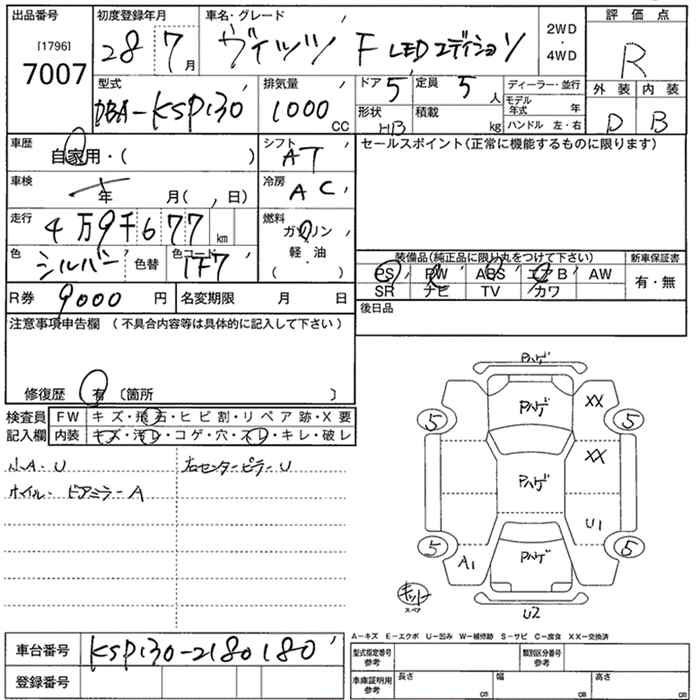 出品番号 初度登録年月 車名・グレード 2WD・4WD 評価点
[1796]
7007 28 7月 ヴィッツ F LEDエディション R
型式 排気量 ドア 5 定員 5人 ディーラー・並行 外装 内装
DBA-KSP130 1000CC 形状 HB 積載 kg モデル年式 年 D B
ハンドル 左・右
車歴 自家用・( ) シフト AT セールスポイント(正常に機能するものに限ります)
車検 年 月( , 日) 冷房 AC
走行 4万9千677km 燃料 ガソリン
軽・油
( )
色 シルバー 色替 色コード 1F7 装備品(純正品に限り丸をつけて下さい) 新車保証書
PS PW ABS エアB AW 有・無
SR ナビ TV カワ
R券 9000円 名変期限 月 日 後日品
注意事項申告欄 (不具合内容等は具体的に記入して下さい)
修復歴 有 〔箇所 〕
検査員 FW キズ・飛石・ヒビ割・リペア跡・X要
記入欄 内装 キズ・汚レ・コゲ・穴・スレ・キレ・破レ
小A・U 右センターピラーU
ホイル・ドアミラーA
Pハゲ
Pハゲ XX
5 5
XX
Pハゲ
U1
5 A1 Pハゲ 5
キット
スペア
U2
A-キズ E-エクボ U-凹み W-補修跡 S-サビ C-腐食 XX-交換済
車台番号 KSP130-2180180
型式指定番号 参考 類別区分番号 参考
登録番号
車庫証明用 参考 長さ cm 幅 cm 高さ cm